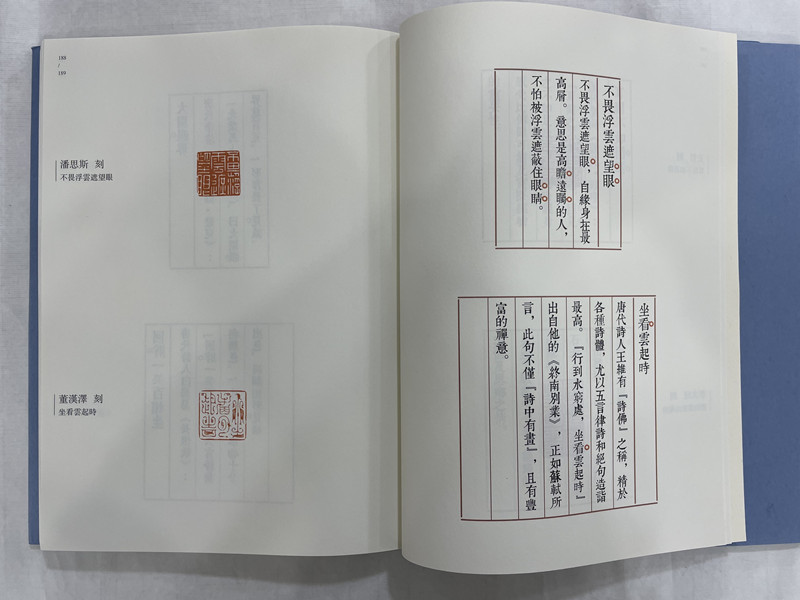 188
/
189
潘思斯 刻
不畏浮雲遮望眼
董漢澤 刻
坐看雲起時
不畏浮雲遮望眼
不畏浮雲遮望眼，自緣身在最
高層。意思是高瞻遠矚的人，
不怕被浮雲遮蔽住眼睛。
坐看雲起時
唐代詩人王維有『詩佛』之稱，精於
各種詩體，尤以五言律詩和絕句造詣
最高。『行到水窮處，坐看雲起時』
出自他的《終南別業》，正如蘇軾所
言，此句不僅『詩中有畫』，且有豐
富的禪意。